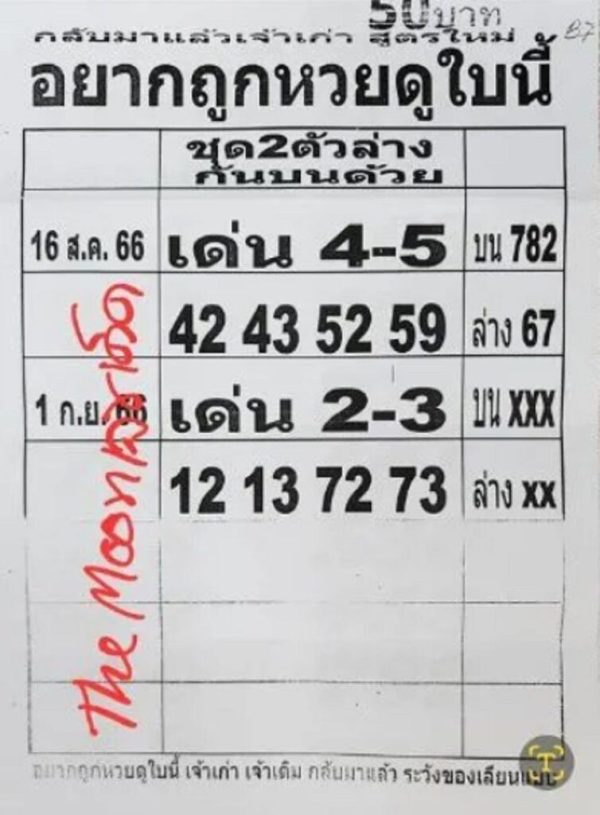 50บาท
กลับมาแล้วเจ้าเก่า สูตรใหม่ B7
อยากถูกหวยดูใบนี้
ชุด2ตัวล่าง
กันบนด้วย
16 ส.ค. 66 เด่น 4-5 บน 782
42 43 52 59 ล่าง 67
1 ก.ย. 66 เด่น 2-3 บน xxx
12 13 72 73 ล่าง xx
The Moon
อยากถูกหวยดูใบนี้ เจ้าเก่า เจ้าเดิม กลับมาแล้ว ระวังของเลียนแบบ